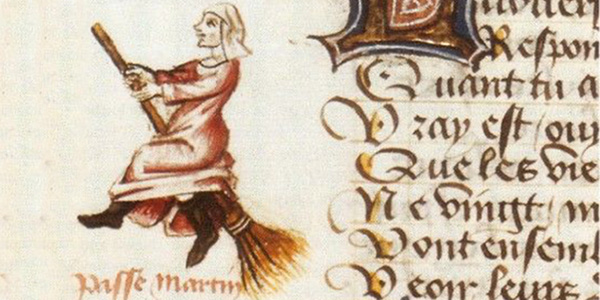 Respon
Quant tu a
Vray est / ouy
Que les vie
Ne vingt m
Vont ensembl
Veoir leurs
passe martin